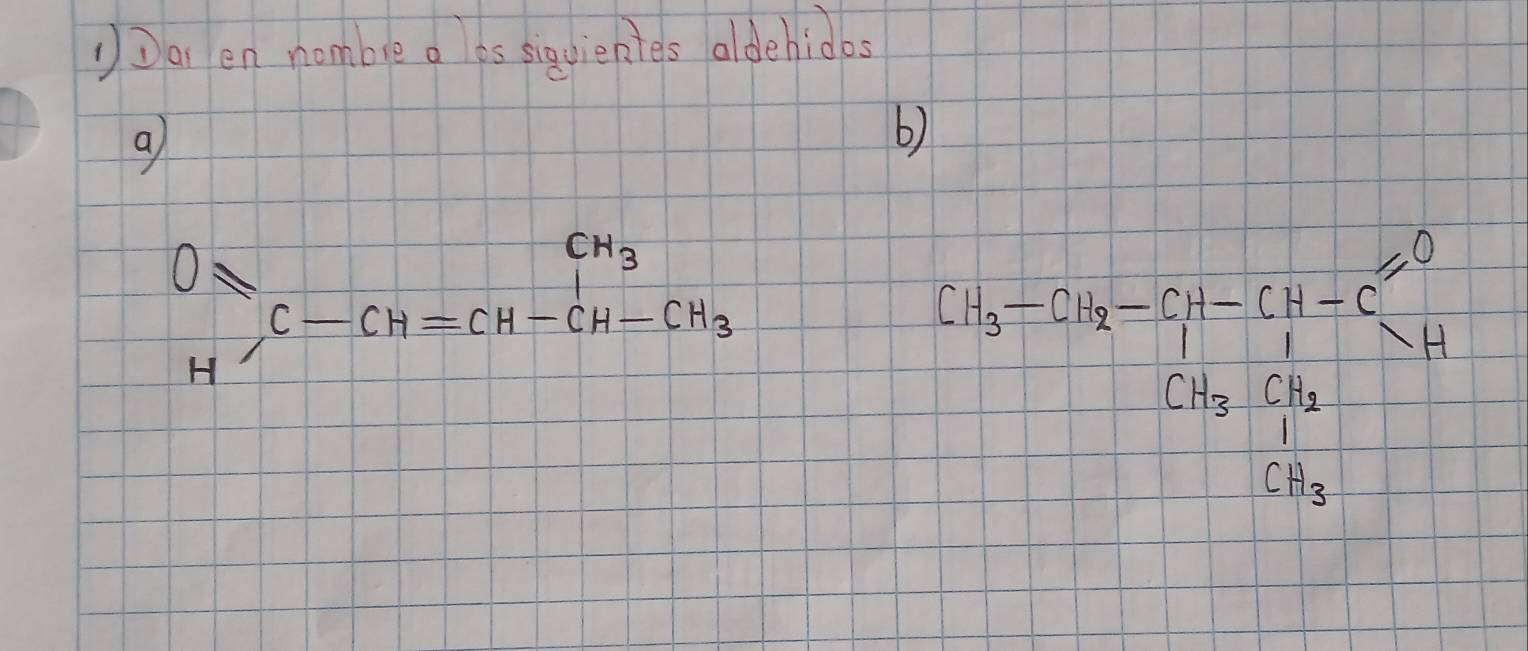 1) Dar en nombre a los siguientes aldehidos
a)
b)
CH3
O
C — CH = CH — CH — CH3
H
O
CH3 — CH2 — CH — CH — C
H
CH3 CH2
CH3